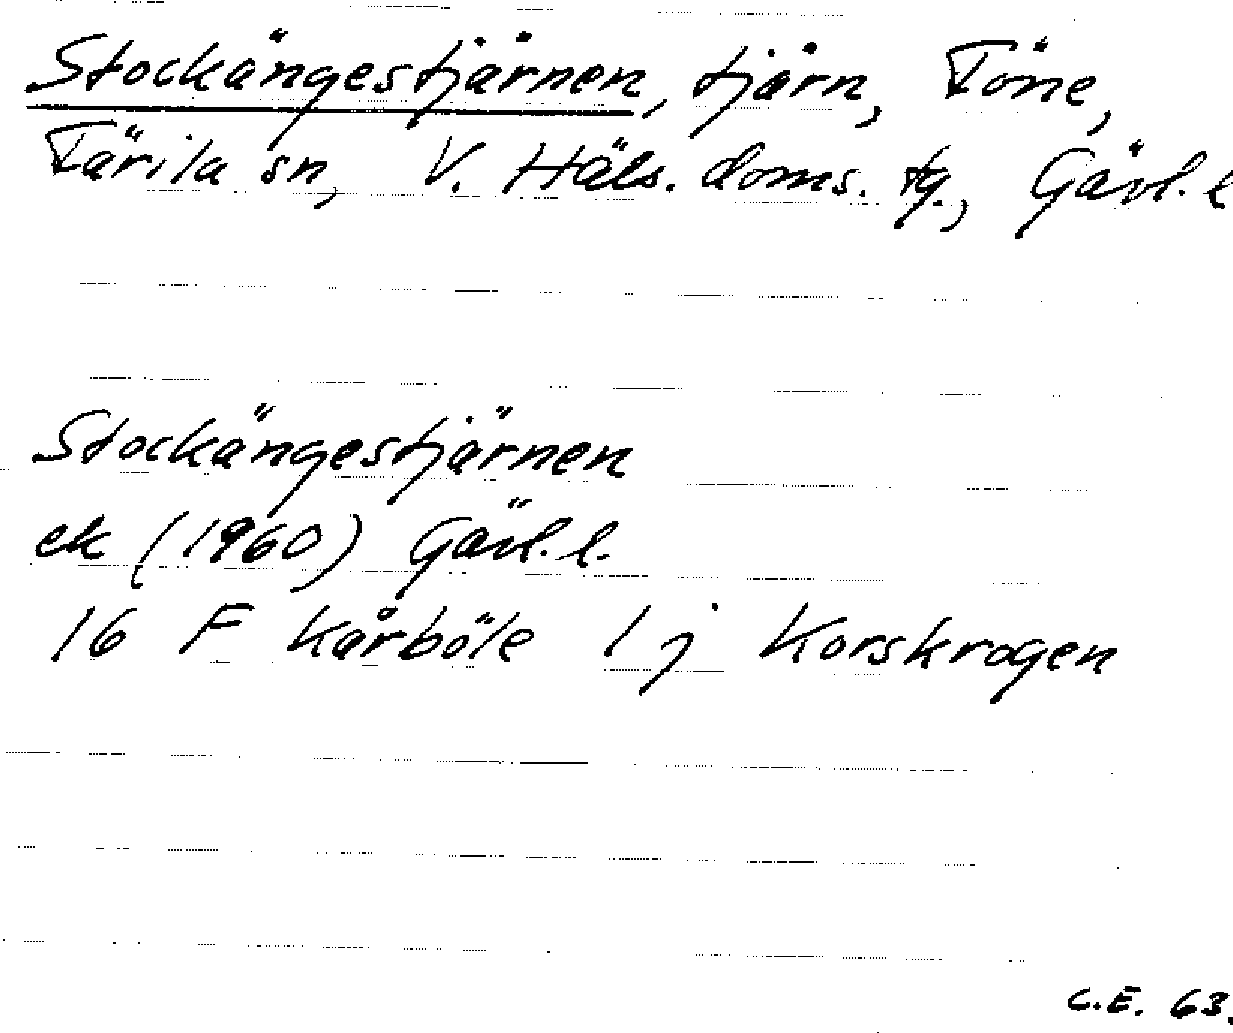 Stockängestjärnen, tjärn, Föne,
Färila sn, V. Häls. doms. tg., Gävl. l
Stockängestjärnen
ek (1960) Gävl. l.
16 F Kårböle 1 j Korskrogen
C.E. 63.